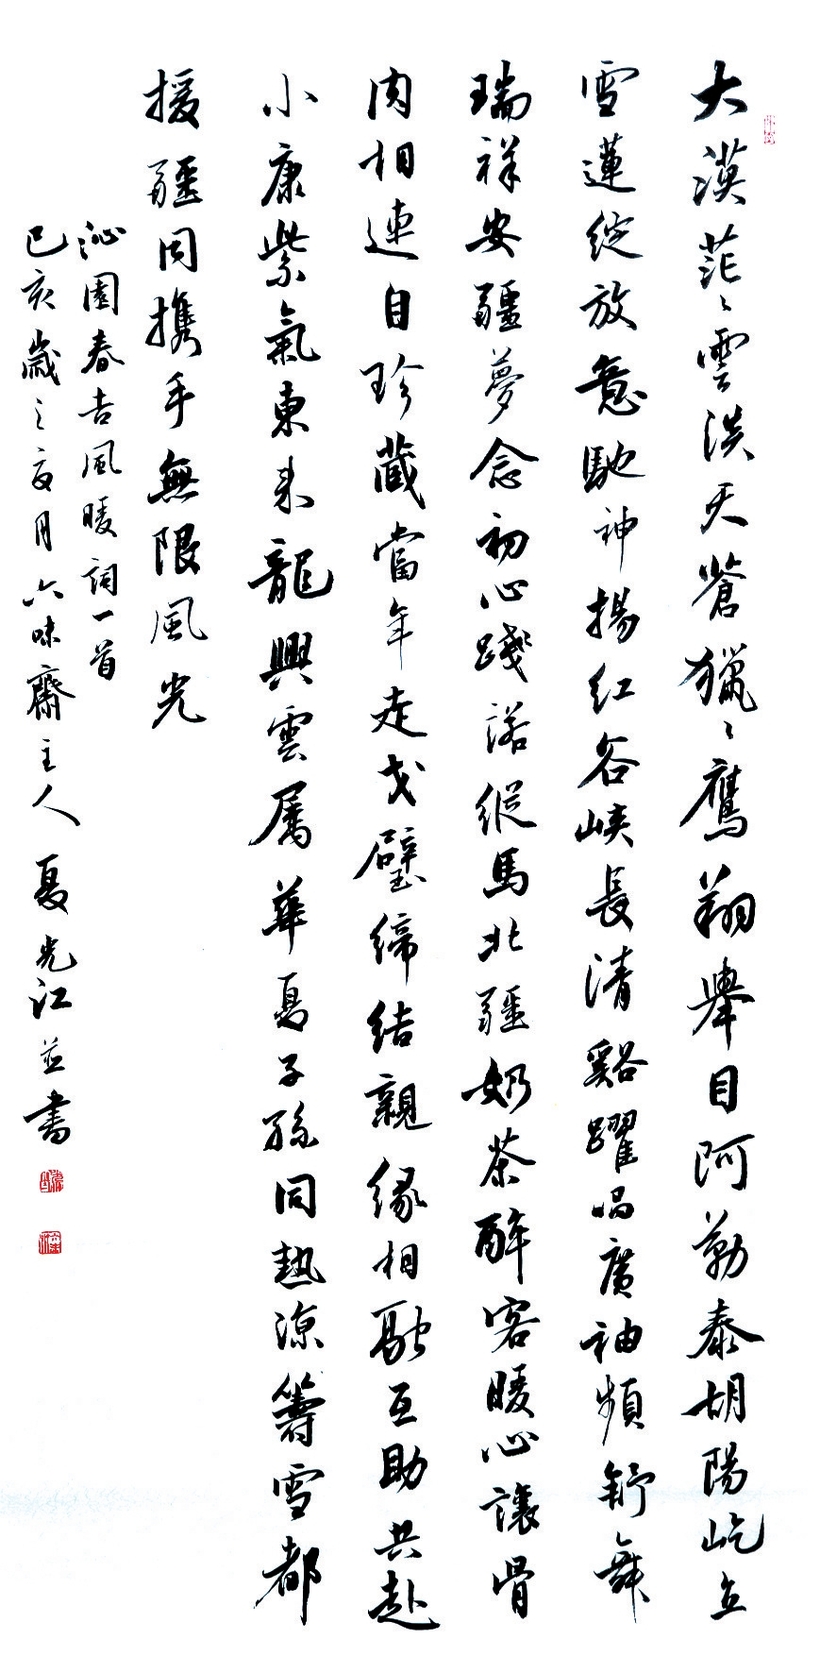 大漠茫〻雲淡天蒼獵〻鷹翔舉目阿勒泰胡陽屹立
雪蓮綻放意馳神揚紅谷峽長清谿躍唱廣袖頻舒舞
瑞祥安疆夢念初心踐諾縱馬北疆奶茶醉客暖心讓骨
肉相連自珍藏當年走戈壁締結親緣相融互助共赴
小康紫氣東來龍興雲属華夏子孫同熱涼籌雪都
援疆同携手無限風光
沁園春吉風暖詞一首
己亥歲之亥月六味齋主人夏光江並書